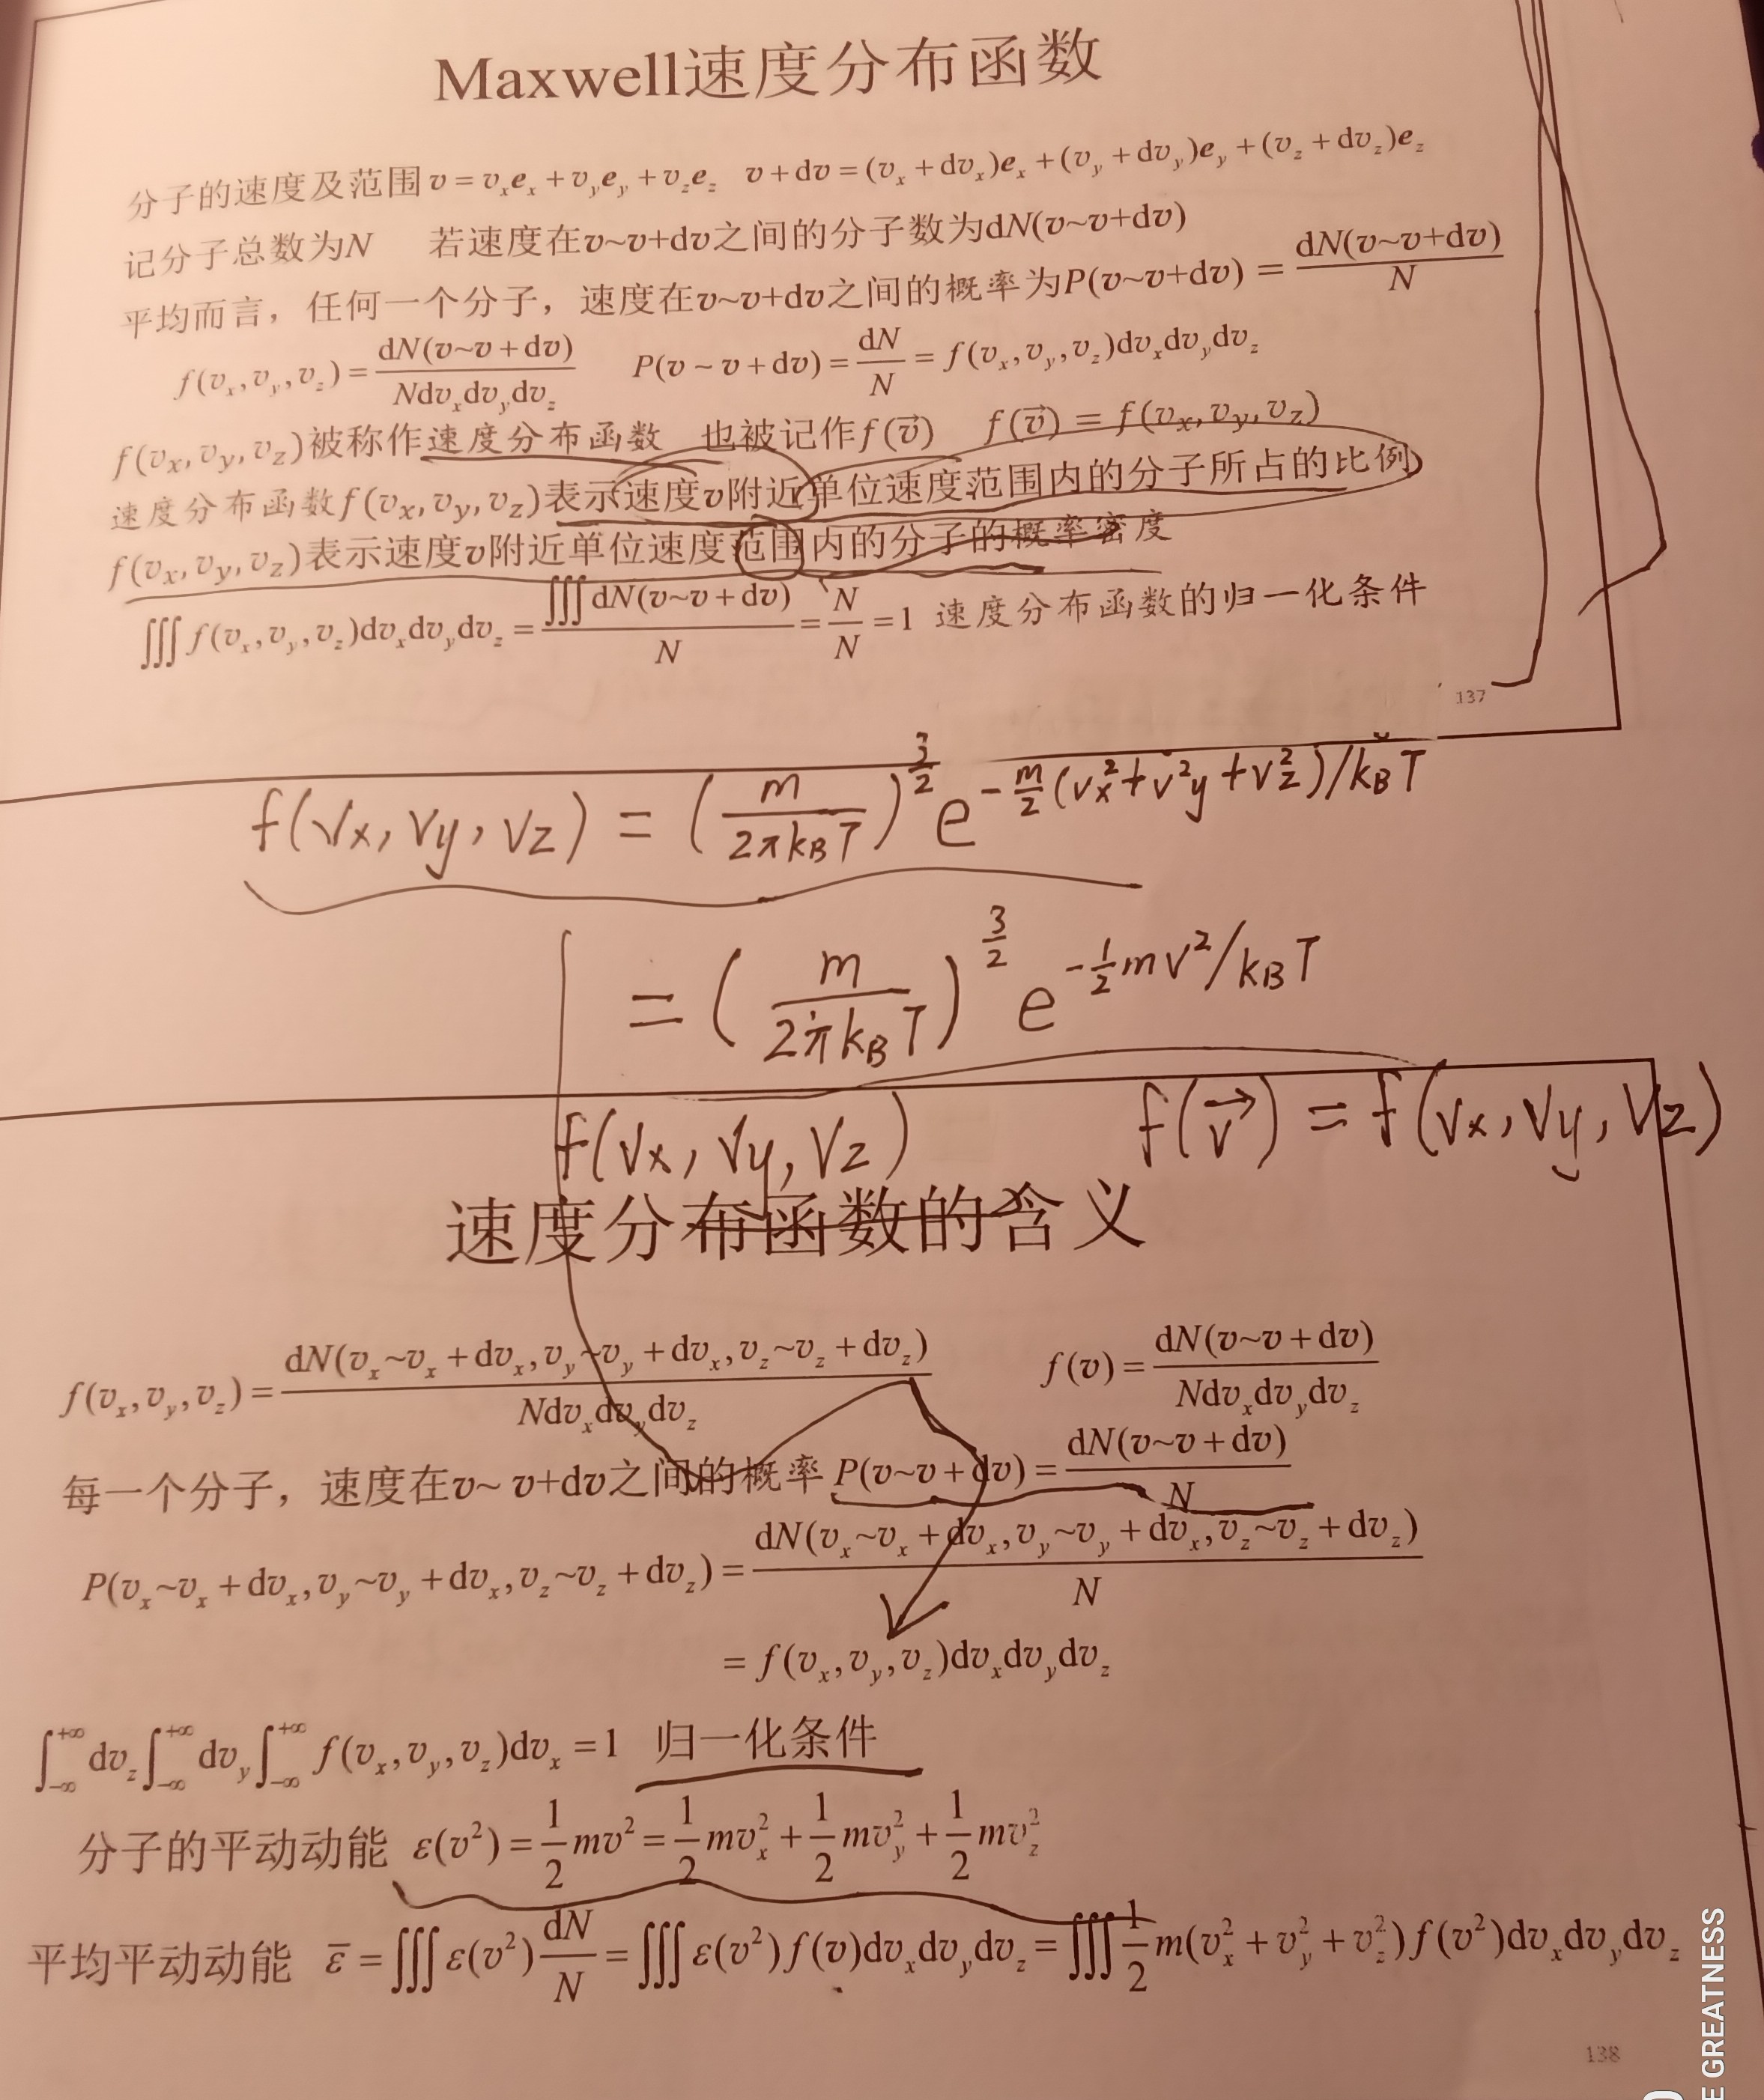 Maxwell速度分布函数
分子的速度及范围 v = vₓeₓ + v_y e_y + v_z e_z   v + dv = (vₓ + dvₓ)eₓ + (v_y + dv_y)e_y + (v_z + dv_z)e_z
记分子总数为N   若速度在v~v+dv之间的分子数为dN(v~v+dv)
平均而言，任何一个分子，速度在v~v+dv之间的概率为P(v~v+dv) = dN(v~v+dv)/N
f(vₓ, v_y, v_z) = dN(v~v + dv)/(Ndvₓdv_ydv_z)   P(v ~ v + dv) = dN/N = f(vₓ, v_y, v_z)dvₓdv_ydv_z
f(vₓ, v_y, v_z)被称作速度分布函数   也被记作f(v⃗)   f(v⃗) = f(vₓ, v_y, v_z)
速度分布函数f(vₓ, v_y, v_z)表示速度v附近单位速度范围内的分子所占的比例
f(vₓ, v_y, v_z)表示速度v附近单位速度范围内的分子的概率密度
∭ f(vₓ, v_y, v_z)dvₓdv_ydv_z = ∭dN(v~v + dv)/N = N/N = 1 速度分布函数的归一化条件
137
f(vₓ, v_y, v_z) = (m/(2πk_BT))^(3/2) e^(-m/2 (vₓ² + v²y + v_z²)/k_BT)
= (m/(2πk_BT))^(3/2) e^(-1/2 mv²/k_BT)
f(vₓ, v_y, v_z)   f(v⃗) = f(vₓ, v_y, v_z)
速度分布函数的含义
f(vₓ, v_y, v_z) = dN(vₓ~vₓ + dvₓ, v_y~v_y + dvₓ, v_z~v_z + dv_z)/(Ndvₓdv_ydv_z)   f(v) = dN(v~v + dv)/(Ndvₓdv_ydv_z)
每一个分子，速度在v~ v+dv之间的概率 P(v~v + dv) = dN(v~v + dv)/N
P(vₓ~vₓ + dvₓ, v_y~v_y + dvₓ, v_z~v_z + dv_z) = dN(vₓ~vₓ + dvₓ, v_y~v_y + dvₓ, v_z~v_z + dv_z)/N
= f(vₓ, v_y, v_z)dvₓdv_ydv_z
∫₋∞^+∞ dv_z ∫₋∞^+∞ dv_y ∫₋∞^+∞ f(vₓ, v_y, v_z)dvₓ = 1   归一化条件
分子的平动动能 ε(v²) = 1/2 mv² = 1/2 mvₓ² + 1/2 mv_y² + 1/2 mv_z²
平均平动动能 ε̄ = ∭ε(v²) dN/N = ∭ε(v²)f(v)dvₓdv_ydv_z = ∭ 1/2 m(vₓ² + v_y² + v_z²)f(v²)dvₓdv_ydv_z
138
E GREATNESS